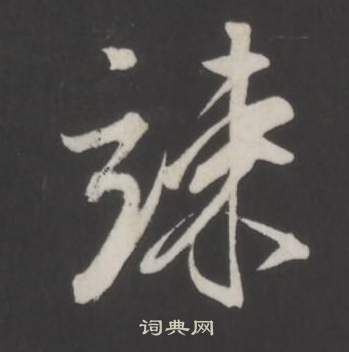 諫
词典网